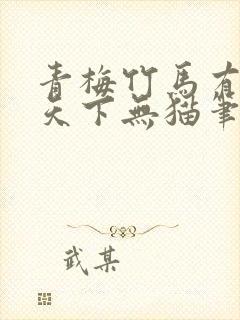 青梅竹馬有
天下無貓筆
武某